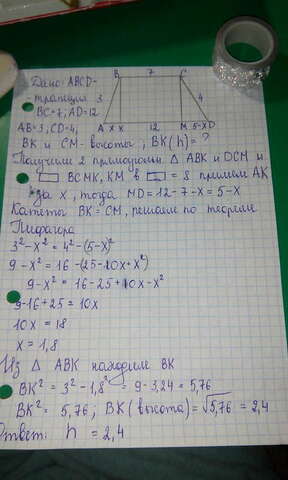 Дано: ABCD-
трапеция
BC=7; AD=12
AB=3; CD=4;
B 7 C
3 4
A x K 12 M 5-x D
BK и CM-высоты; BK(h)=?
Получили 2 прямоуг. Δ ABK и DCM и
BCMK, KM в = 8 примем AK
за x, тогда MD=12-7-x=5-x
Катеты BK=CM, решаем по теореме
Пифагора
3²-x²=4²-(5-x)²
9-x²=16-(25-10x+x²)
9-x²=16-25+10x-x²
9-16+25=10x
10x=18
x=1,8
Из Δ ABK находим BK
BK²=3²-1,8²=9-3,24=5,76
BK²=5,76; BK(высота)=√5,76=2,4
Ответ: h=2,4